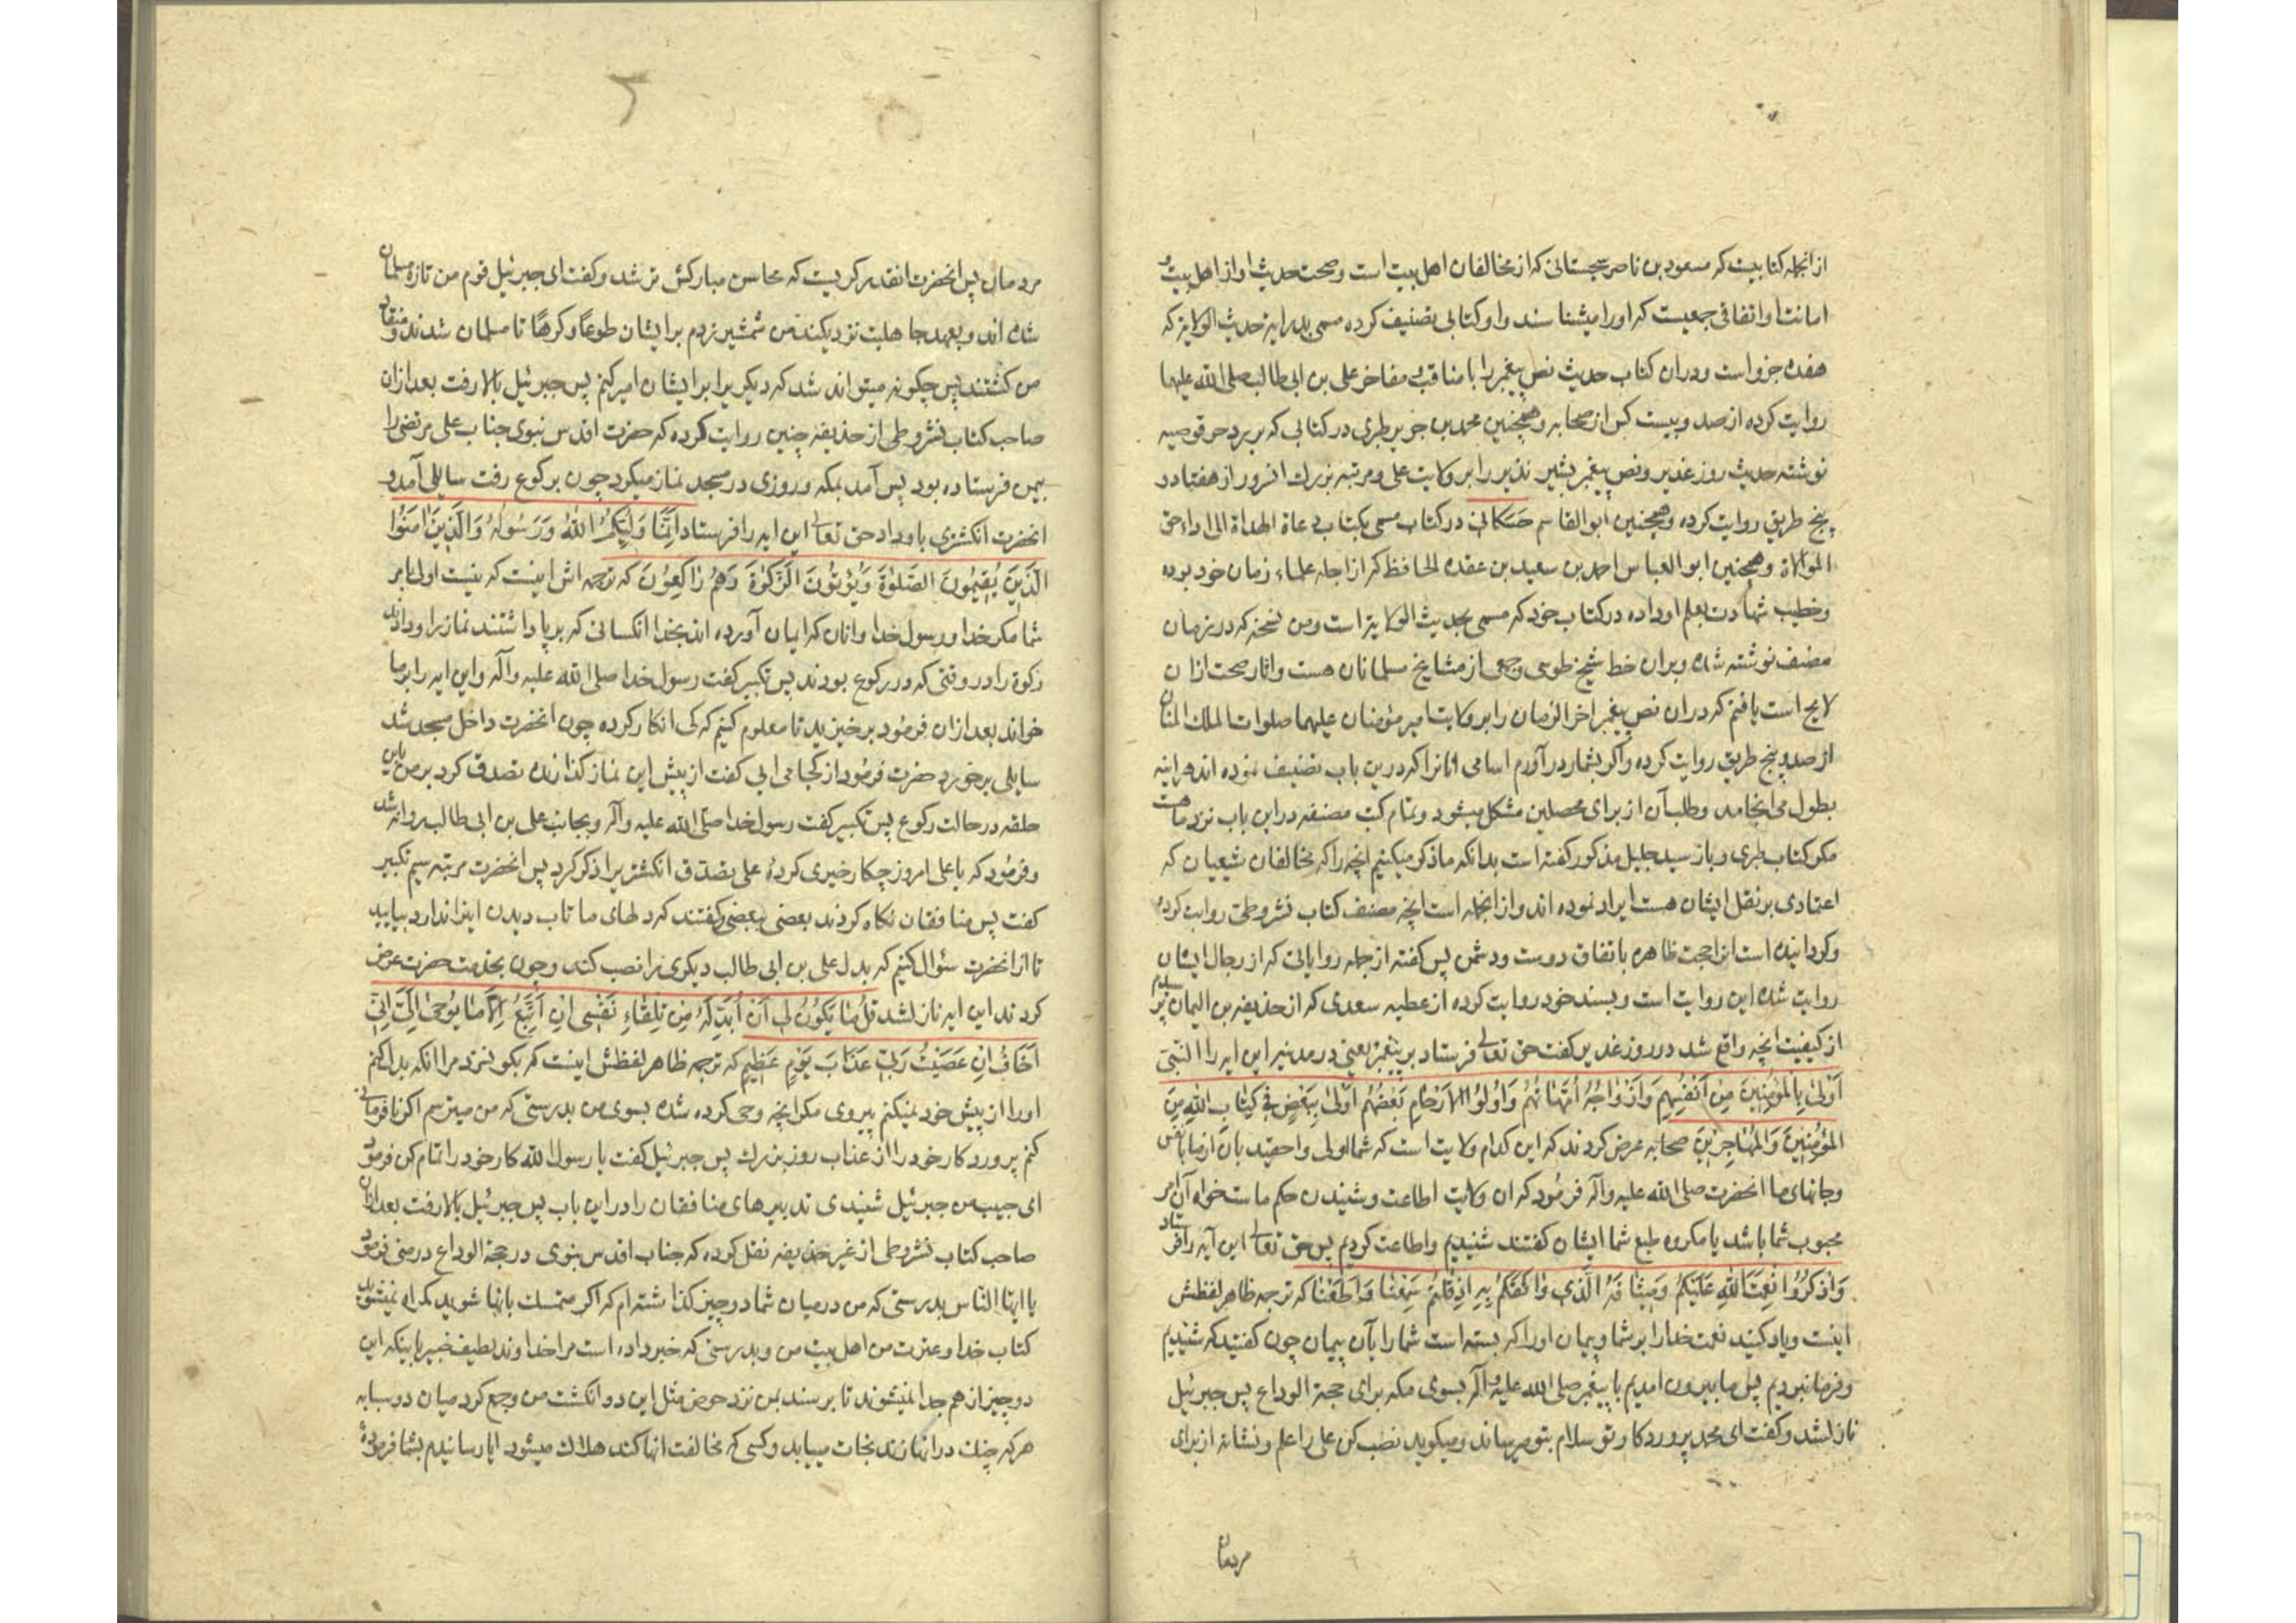 از انجمله کتابیست که مسعود بن ناصر سجستانی که از مخالفان اهل بیت است و صحت حدیث او از اهل بیت و
امانت او اتفاقی جمعیست که او را میشناسند و او کتابی تصنیف کرده مسمی بدرایة حدیث الولایة که
هفده جزو است و در ان کتاب حدیث نص پیغمبر را با مناقب و مفاخر علی بن ابی طالب صلی الله علیهما
روایت کرده از صد و بیست کس از صحابه و همچنین محمد بن جریر طبری در کتابی که بر رد حرقوصیه
نوشته حدیث روز غدیر و نص پیغمبر بشیر نذیر را بر ولایت علی و مرتبه بزرك انسرور از هفتاد و
پنج طریق روایت کرده و همچنین ابو القاسم حسکانی در کتاب مسمی بکتاب دعاة الهداة الی اداء حق
الموالاة و همچنین ابو العباس احمد بن سعید بن عقده الحافظ که از اجله علماء زمان خود بوده
و خطیب شهادت بعلم او داده در کتاب خود که مسمی بحدیث الولایة است و من نسخه که در زمان
مصنف نوشته شده و بران خط شیخ طوسی و جمعی از مشایخ مسلمانان هست و اثار صحت ازان
لایح است یافتم که دران نص پیغمبر اخر الزمان را بر ولایت امیر مؤمنان علیهما صلوات الملك المنان
از صد و پنج طریق روایت کرده و اکر بشمار در آورم اسامی انانرا که درین باب تصنیف نموده اند هر اینه
بطول می انجامد و طلب آن از برای محصلین مشکل میشود و تمام کتب مصنفه در این باب نزد ما هست
مکر کتاب طبری و باز سید جلیل مذکور کفته است بدانکه ما ذکر میکنیم انچه را که مخالفان شیعیان که
اعتمادی بر نقل ایشان هست ایراد نموده اند و از انجمله است انچه مصنف کتاب نشر وطی روایت کرده
و کردانیده است انرا حجت ظاهره باتفاق دوست و دشمن پس کفته از جمله روایاتی که از رجال ایشان
روایت شده این روایت است و بسند خود روایت کرده از عطیه سعدی که از حذیفه بن الیمان پرسیدم
از کیفیت انچه واقع شد در روز غدیر کفت حق تعالی فرستاد بر پیغمبر یعنی در مدینه این ایه را النبی
اَوْلیٰ بِالْمُؤْمِنِینَ مِنْ اَنْفُسِهِمْ وَاَزْوَاجُهُ اُمَّهَاتُهُمْ وَاُولُوا الْاَرْحَامِ بَعْضُهُمْ اَوْلیٰ بِبَعْضٍ فِی کِتَابِ اللّٰهِ مِنَ
الْمُؤْمِنِینَ وَالْمُهَاجِرِینَ صحابه عرض کردند که این کدام ولایت است که شما اولی و احقید بان از ما بانفس
و جانهای ما انحضرت صلی الله علیه و آله فرمود که ان ولایت اطاعت و شنیدن حکم ماست خواه آن امر
محبوب شما باشد یا مکروه طبع شما ایشان کفتند شنیدیم و اطاعت کردیم پس حق تعالی این آیه را فرستاد
وَاذْکُرُوا نِعْمَتَ اللّٰهِ عَلَیْکُمْ وَمِیثَاقَهُ الَّذِی وَاثَقَکُمْ بِهِ اِذْ قُلْتُمْ سَمِعْنَا وَاَطَعْنَا که ترجمه ظاهر لفظش
اینست و یاد کنید نعمت خدا را بر شما و پیمان او را که بسته است شما را بآن پیمان چون کفتید که شنیدیم
و فرمانبردیم پس ما بیرون امدیم با پیغمبر صلی الله علیه و آله بسوی مکه برای حجة الوداع پس جبرئیل
نازل شد و کفت ای محمد پروردکار تو سلام بتو میرساند و میکوید نصب کن علی را علم و نشانه از برای
مردمان
مردمان پس انحضرت انقدر کریست که محاسن مبارکش تر شد و کفت ای جبرئیل قوم من تازه مسلمان
شده اند و بعهد جاهلیت نزدیکند من شمشیر زدم بر ایشان طوعًا و کرهًا تا مسلمان شدند و منقاد
من کشتند پس چکونه میتواند شد که دیکریرا بر ایشان امیر کنم پس جبرئیل بالا رفت بعد ازان
صاحب کتاب نشر وطی از حذیفه چنین روایت کرده که حضرت اقدس نبوی جناب علی مرتضی را
بیمن فرستاده بود پس آمد بمکه و روزی در مسجد نماز میکرد چون برکوع رفت سایلی آمد و
انحضرت انکشتری باو داد حق تعالی این ایه را فرستاد اِنَّمَا وَلِیُّکُمُ اللّٰهُ وَرَسُولُهُ وَالَّذِینَ اٰمَنُوا
الَّذِینَ یُقِیمُونَ الصَّلوٰةَ وَیُؤْتُونَ الزَّکوٰةَ وَهُمْ رَاکِعُونَ که ترجمه اش اینست که نیست اولی بامر
شما مکر خدا و رسول خدا و انان که ایمان آورده اند بخدا انکسانی که برپا داشتند نماز را و دادند
زکوة را در وقتی که در رکوع بودند پس تکبیر کفت رسول خدا صلی الله علیه و آله و این ایه را بر ما
خواند بعد ازان فرمود برخیزید تا معلوم کنیم که کی انکار کرده چون انحضرت داخل مسجد شد
سایلی برخورد حضرت فرمود از کجا می ایی کفت از پیش این نماز کذارنده تصدق کرد بر من باین
حلقه در حالت رکوع پس تکبیر کفت رسول خدا صلی الله علیه و آله و بجانب علی بن ابی طالب روانه شد
و فرمود که یا علی امروز چکار خیری کردهٔ علی تصدق انکشتر را ذکر کرد پس انحضرت مرتبه سیم تکبیر
کفت پس منافقان نکاه کردند بعضی ببعضی و کفتند که دلهای ما تاب دیدن اینرا ندارد بیایید
تا از انحضرت سؤال کنیم که بدل علی بن ابی طالب دیکری را نصب کند و چون بخدمت حضرت عرض
کردند این ایه نازل شد قُلْ مَا یَکُونُ لِی اَنْ اُبَدِّلَهُ مِنْ تِلْقَاءِ نَفْسِی اِنْ اَتَّبِعُ اِلَّا مَا یُوحیٰ اِلَیَّ اِنِّی
اَخَافُ اِنْ عَصَیْتُ رَبِّی عَذَابَ یَوْمٍ عَظِیمٍ که ترجمه ظاهر لفظش اینست که بکو نسزد مرا انکه بدل کنم
او را از پیش خود نمیکنم پیروی مکر انچه وحی کرده شده بسوی من بدرستی که من میترسم اکر نافرمانی
کنم پروردکار خود را از عذاب روز بزرك پس جبرئیل کفت یا رسول الله کار خود را تمام کن فرمود
ای حبیب من جبرئیل شنیدی تدبیرهای منافقان را در این باب پس جبرئیل بالا رفت بعد ازان
صاحب کتاب نشر وطی از غیر حذیفه نقل کرده که جناب اقدس نبوی در حجة الوداع در منی فرمود
یا ایها النّاس بدرستی که من در میان شما دو چیز کذاشته ام که اکر متمسك بانها شوید کمراه نمیشوید
کتاب خدا و عترت من اهل بیت من و بدرستی که خبر داده است مرا خداوند لطیف خبیر باینکه این
دو چیز از هم جدا نمیشوند تا برسند بمن نزد حوض مثل این دو انکشت من و جمع کرد میان دو سبابه
هر که چنك در انها زند نجات مییابد و کسی که مخالفت انها کند هلاك میشود ایا رسانیدم بشما فرمودهٔ